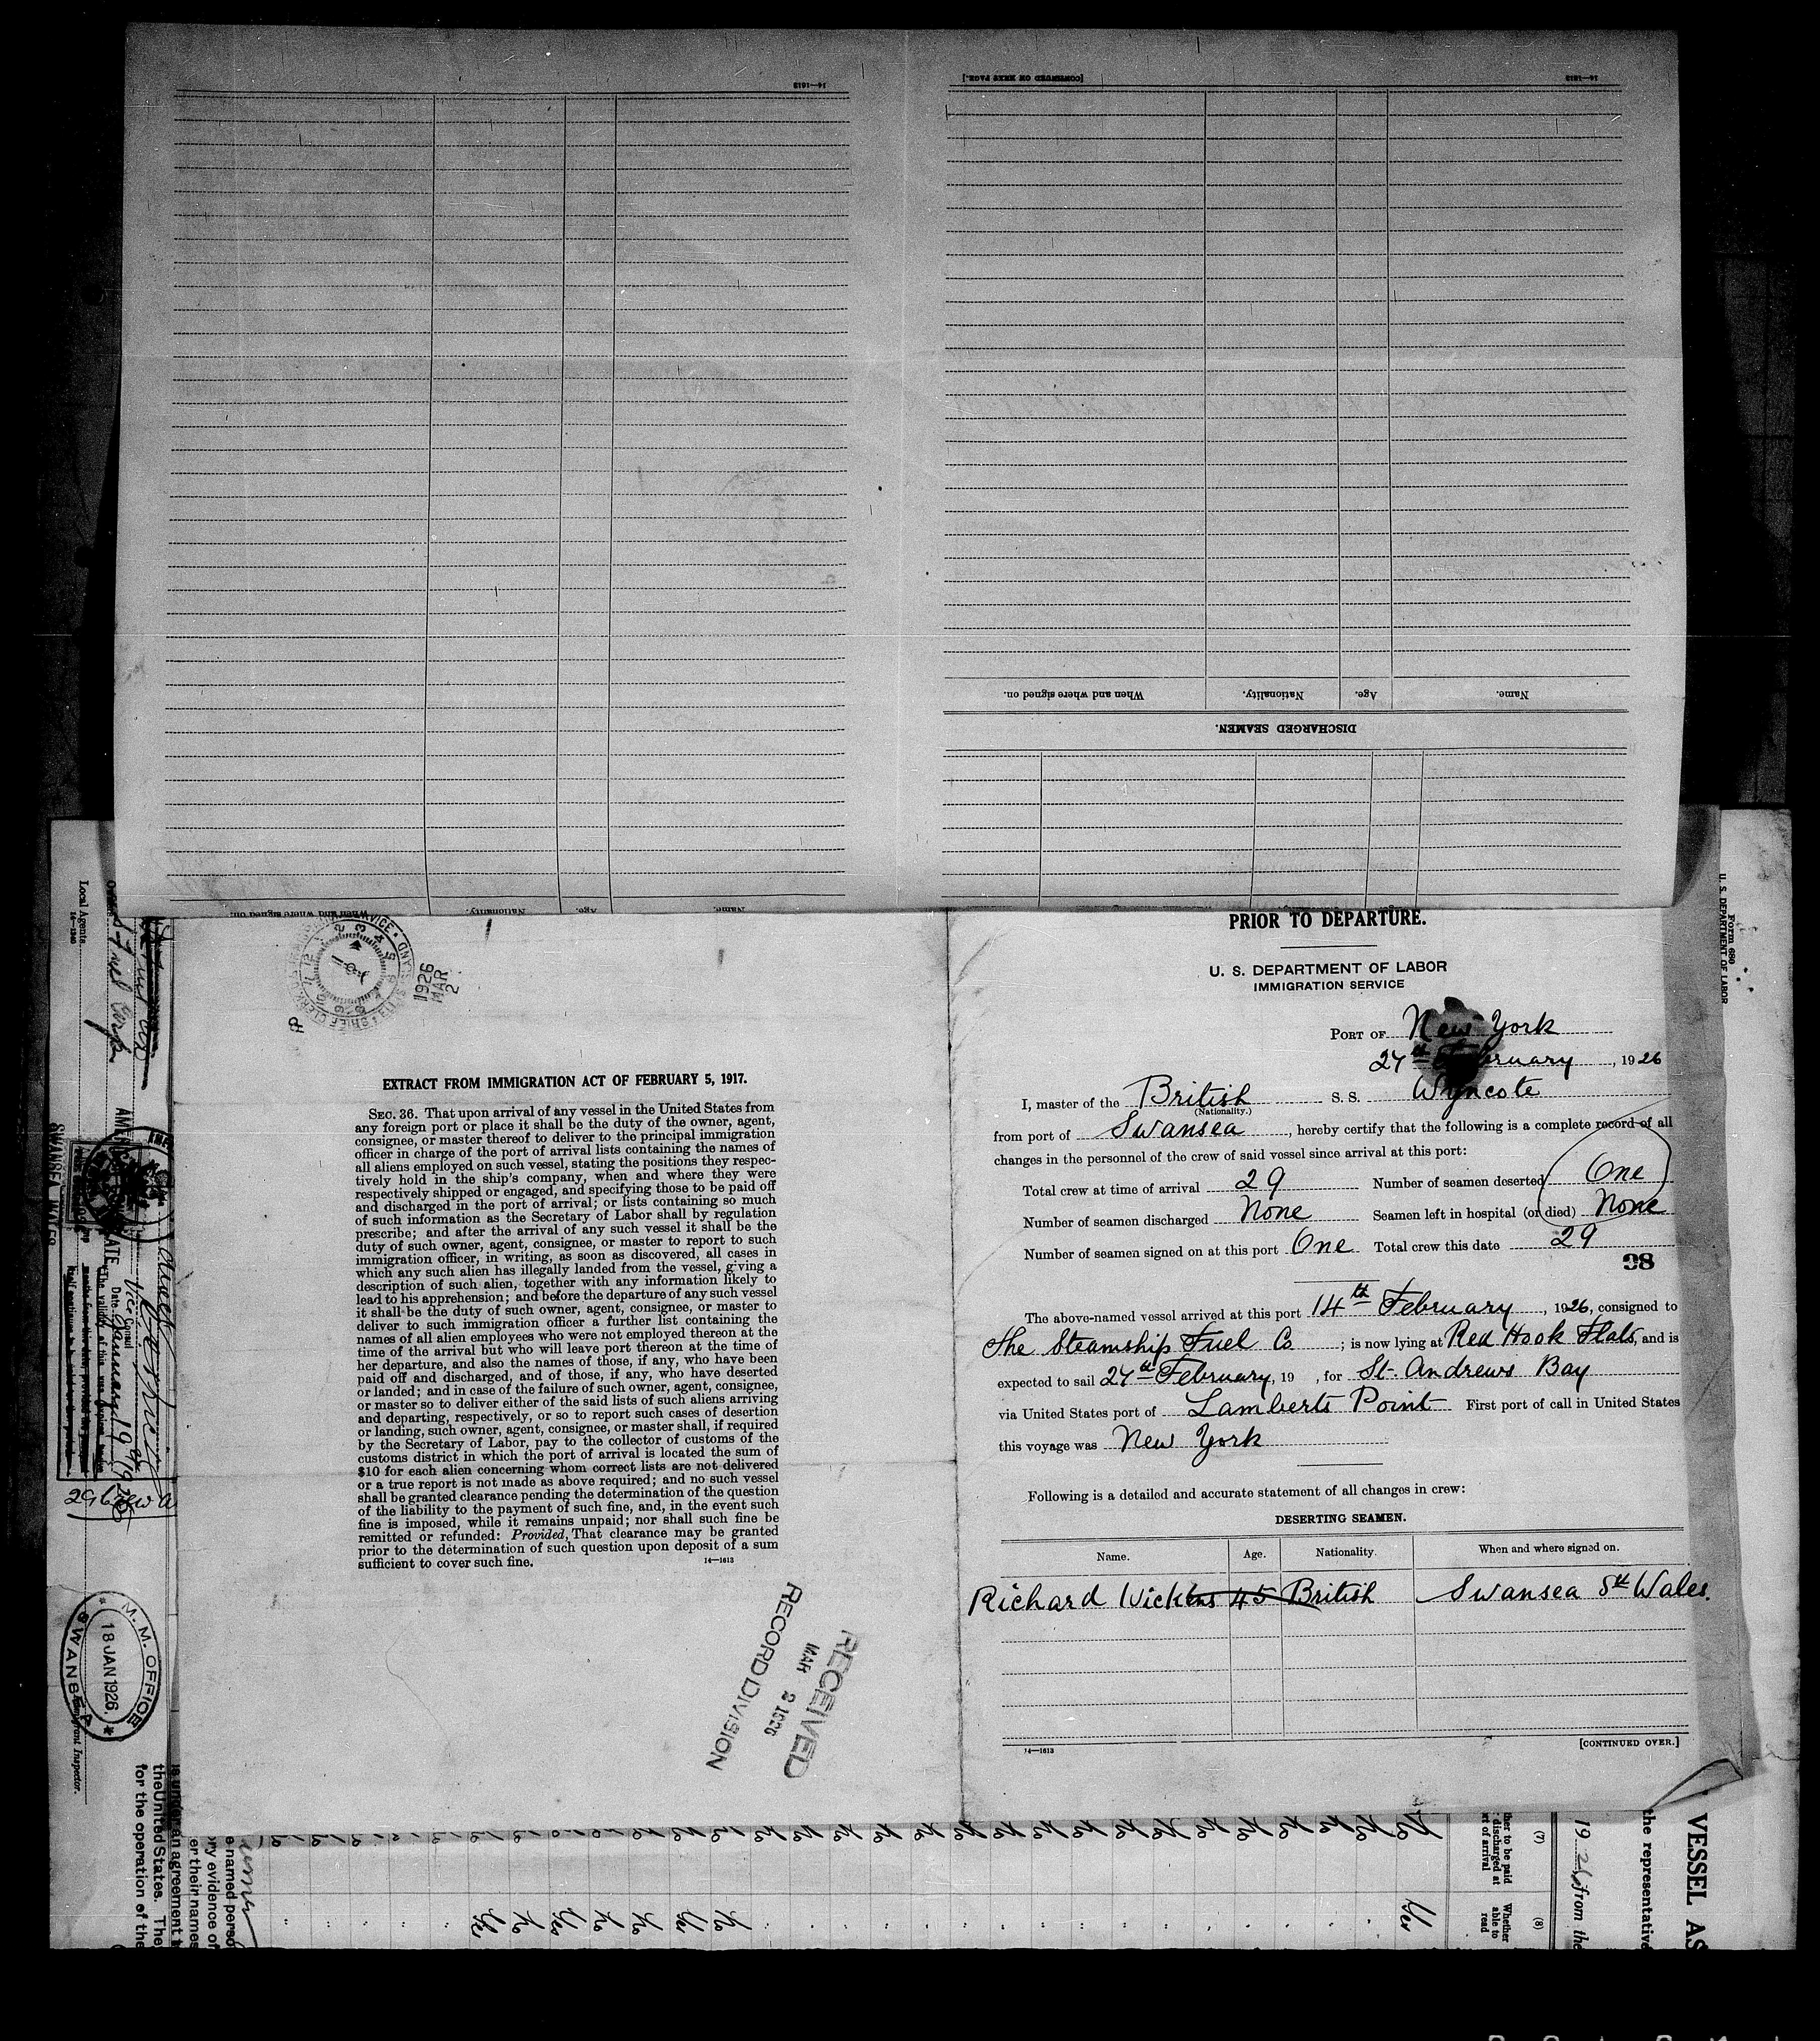 [CONTINUED ON NEXT PAGE.]
14—1613
14—1613
When and where signed on.
Nationality.
Age.
Name.
DISCHARGED SEAMEN.
When and where signed on.
Nationality.
Age.
Name.
1926
MAR
2
EXTRACT FROM IMMIGRATION ACT OF FEBRUARY 5, 1917.
SEC. 36. That upon arrival of any vessel in the United States from
any foreign port or place it shall be the duty of the owner, agent,
consignee, or master thereof to deliver to the principal immigration
officer in charge of the port of arrival lists containing the names of
all aliens employed on such vessel, stating the positions they respec-
tively hold in the ship's company, when and where they were
respectively shipped or engaged, and specifying those to be paid off
and discharged in the port of arrival; or lists containing so much
of such information as the Secretary of Labor shall by regulation
prescribe; and after the arrival of any such vessel it shall be the
duty of such owner, agent, consignee, or master to report to such
immigration officer, in writing, as soon as discovered, all cases in
which any such alien has illegally landed from the vessel, giving a
description of such alien, together with any information likely to
lead to his apprehension; and before the departure of any such vessel
it shall be the duty of such owner, agent, consignee, or master to
deliver to such immigration officer a further list containing the
names of all alien employees who were not employed thereon at the
time of the arrival but who will leave port thereon at the time of
her departure, and also the names of those, if any, who have been
paid off and discharged, and of those, if any, who have deserted
or landed; and in case of the failure of such owner, agent, consignee,
or master so to deliver either of the said lists of such aliens arriving
and departing, respectively, or so to report such cases of desertion
or landing, such owner, agent, consignee, or master shall, if required
by the Secretary of Labor, pay to the collector of customs of the
customs district in which the port of arrival is located the sum of
$10 for each alien concerning whom correct lists are not delivered
or a true report is not made as above required; and no such vessel
shall be granted clearance pending the determination of the question
of the liability to the payment of such fine, and, in the event such
fine is imposed, while it remains unpaid; nor shall such fine be
remitted or refunded: Provided, That clearance may be granted
prior to the determination of such question upon deposit of a sum
sufficient to cover such fine.
14—1613
RECEIVED
MAR 2 1926
RECORD DIVISION
PRIOR TO DEPARTURE.
U. S. DEPARTMENT OF LABOR
IMMIGRATION SERVICE
PORT OF New York
27th February, 1926
I, master of the British S. S. Wyncote
(Nationality.)
from port of Swansea, hereby certify that the following is a complete record of all
changes in the personnel of the crew of said vessel since arrival at this port:
Total crew at time of arrival 29 Number of seamen deserted One
Number of seamen discharged None Seamen left in hospital (or died) None
Number of seamen signed on at this port One Total crew this date 29
98
The above-named vessel arrived at this port 14th February, 1926, consigned to
The Steamship Fuel Co; is now lying at Red Hook Flats, and is
expected to sail 27th February, 19 , for St. Andrews Bay
via United States port of Lamberts Point First port of call in United States
this voyage was New York
Following is a detailed and accurate statement of all changes in crew:
DESERTING SEAMEN.
Name. Age. Nationality. When and where signed on.
Richard Vickers 45 British Swansea Sth Wales.
14—1613
[CONTINUED OVER.]
Form 680
U. S. DEPARTMENT OF LABOR
Local Agents.
14—1240
SWANSEA WALES
Vice Consul
Date January 19th 1926
M. M. OFFICE
18 JAN 1926
SWANSEA
Immigrant Inspector.
is under an agreement
the United States. The
for the operation of the
VESSEL AS
the representative
1926, from the
(7)
(8)
Whether
able to
read
Yes
No
Yes
No
No
Yes
No
Yes